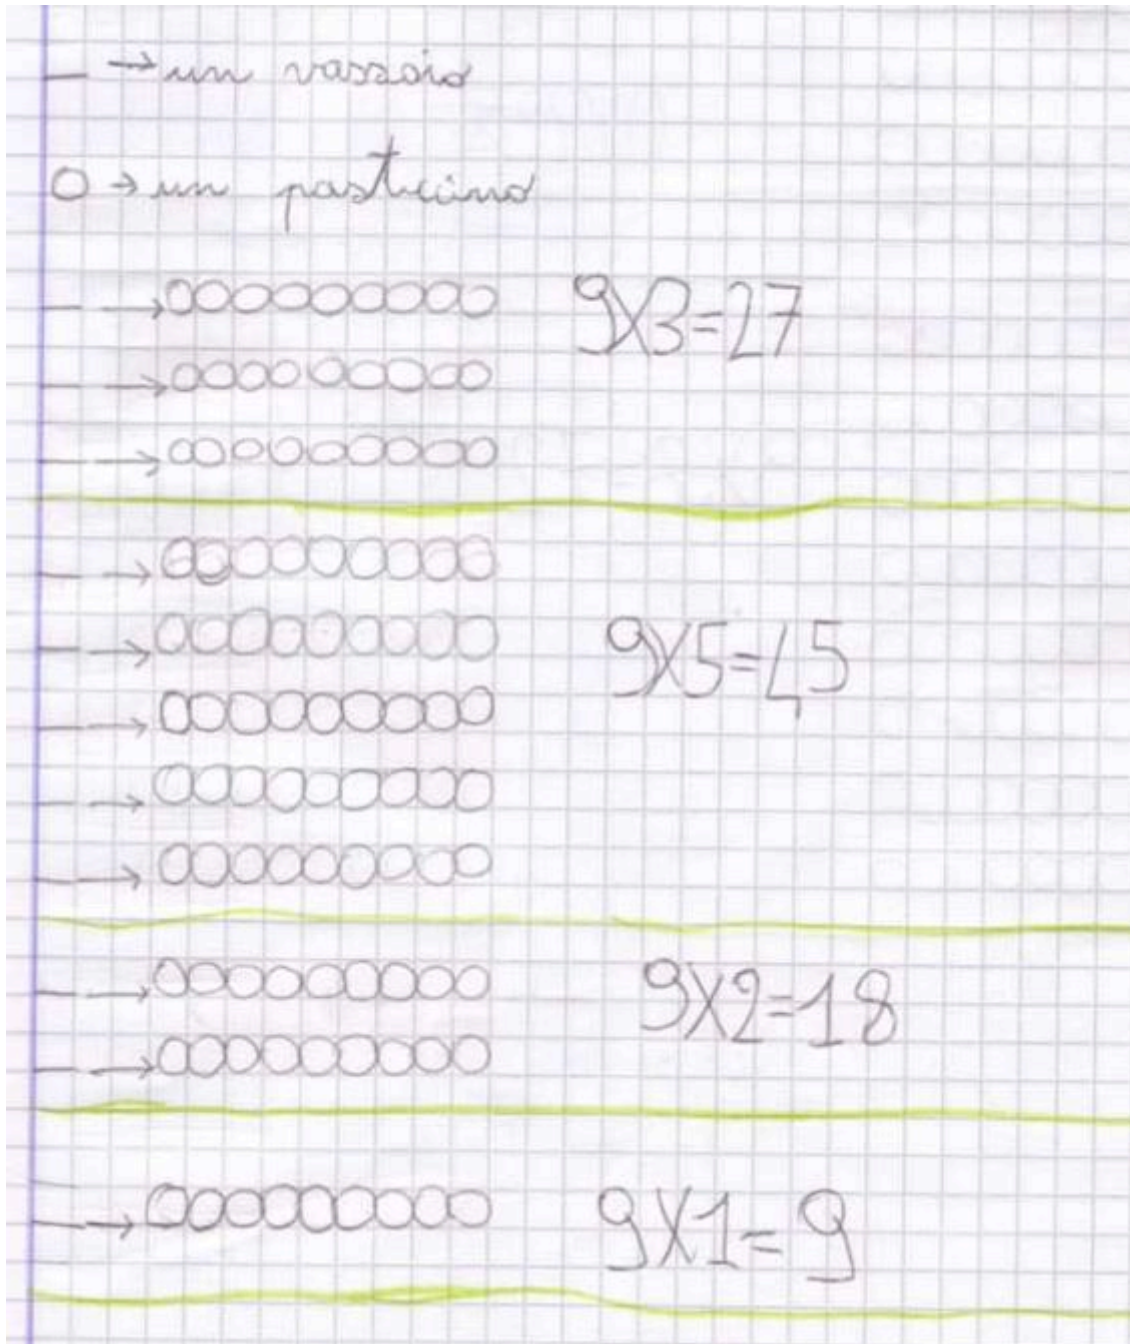 — → un vassoio
O → un pasticino
9X3=27
9X5=45
9X2=18
9X1=9